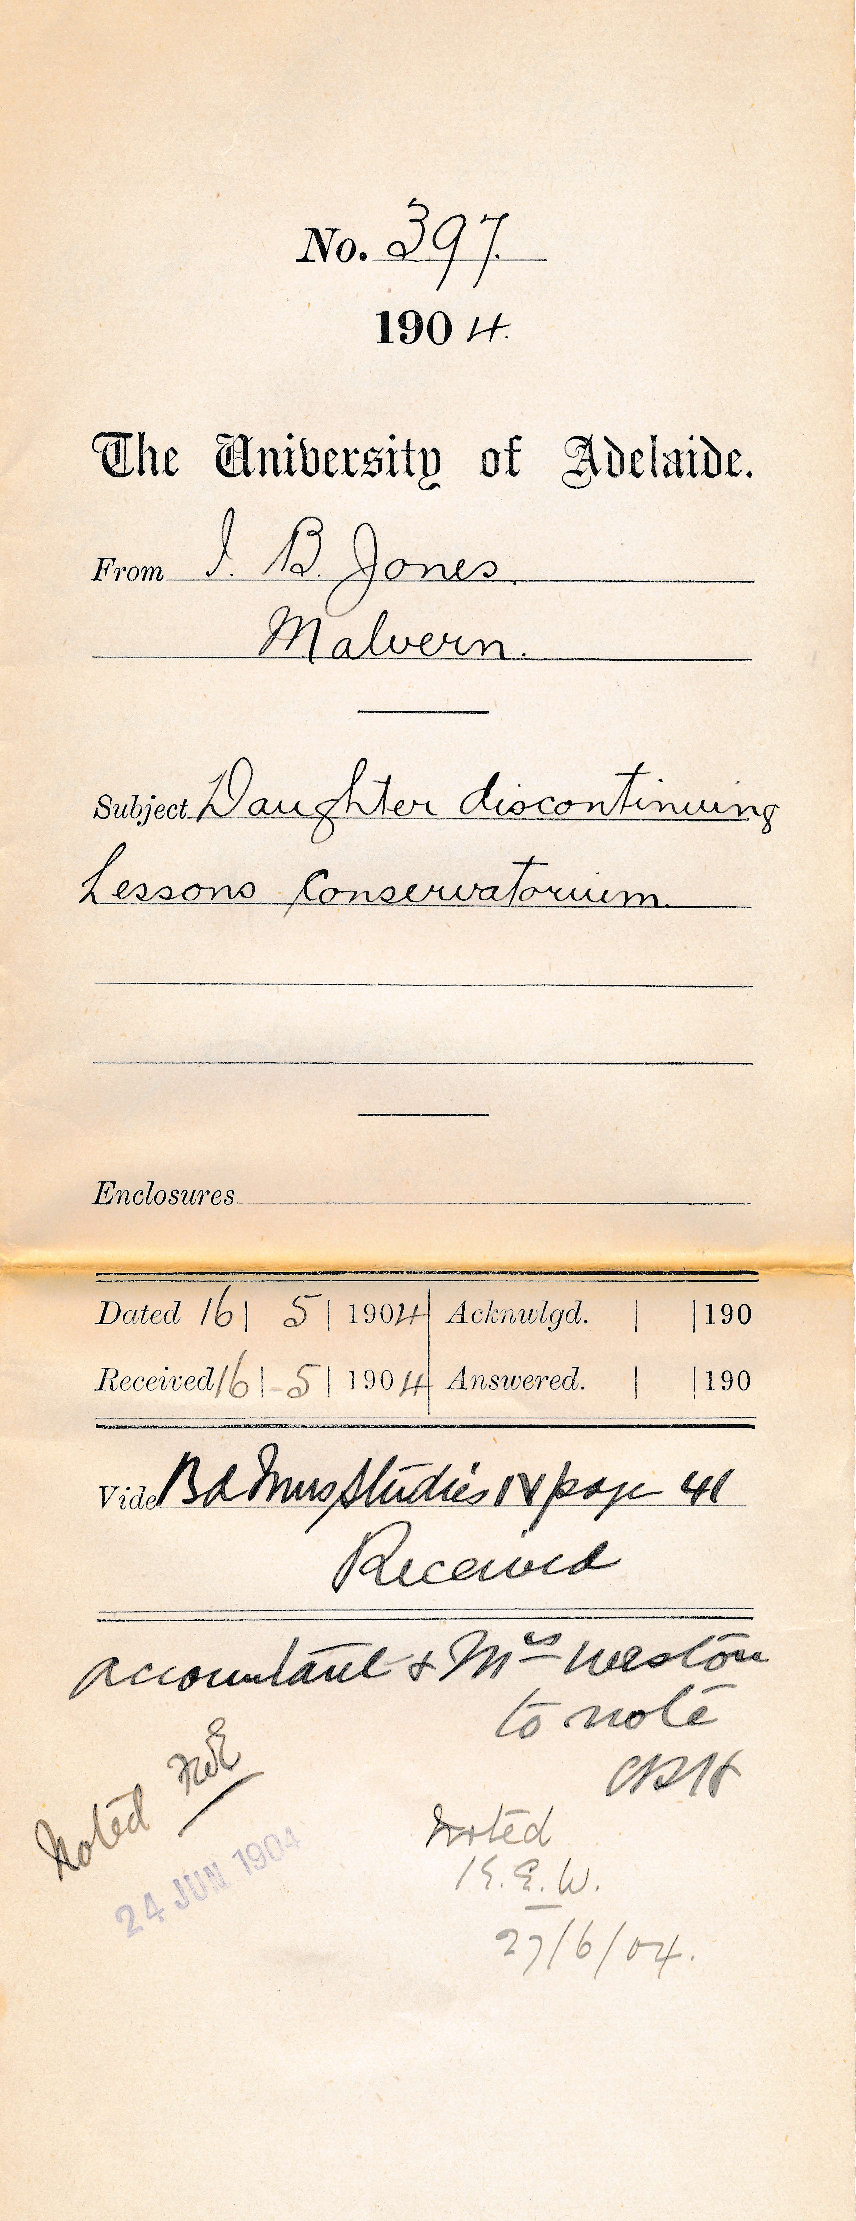 No. 397.
1904.
The University of Adelaide.
From I. B. Jones.
Malvern.
Subject Daughter discontinuing
Lessons Conservatorium.
Enclosures
Dated 16 | 5 | 1904 | Acknwlgd. | | 190
Received 16 | 5 | 1904 | Answered. | | 190
Vide Bd Mus Studies IV page 41
Received
Accountant & Mrs Weston
to note
CRH
Noted
Noted
K.E.W.
24 JUN 1904
27/6/04.